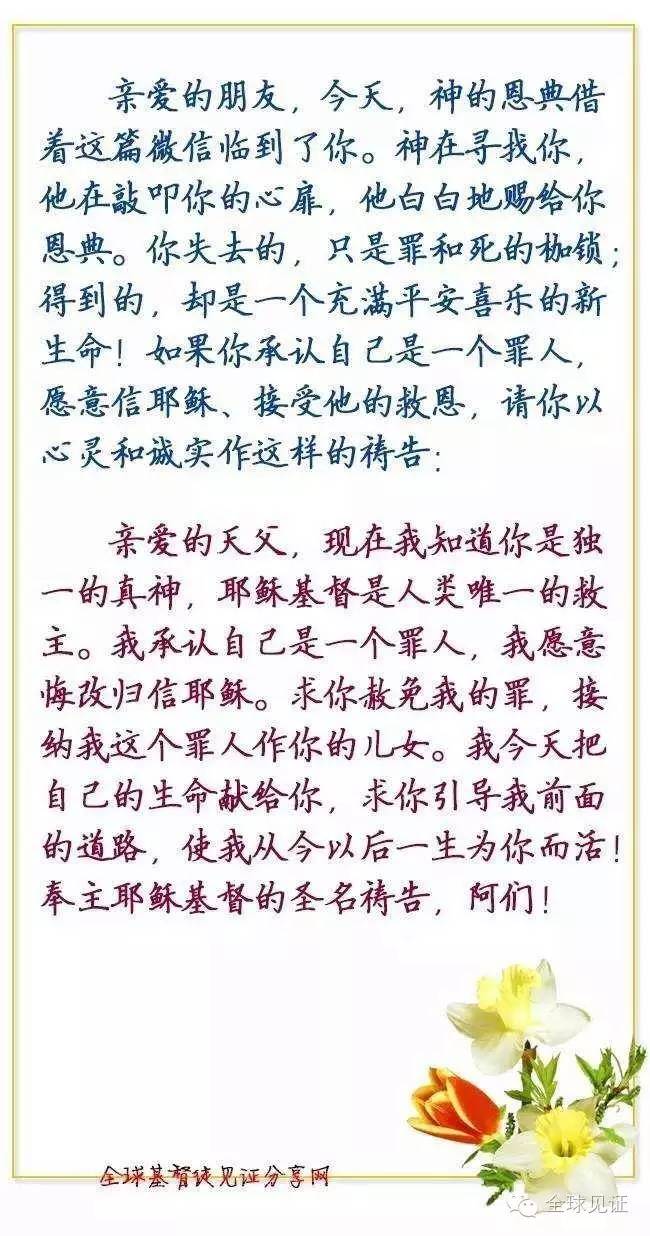 亲爱的朋友，今天，神的恩典借
着这篇微信临到了你。神在寻找你，
他在敲叩你的心扉，他白白地赐给你
恩典。你失去的，只是罪和死的枷锁；
得到的，却是一个充满平安喜乐的新
生命！如果你承认自己是一个罪人，
愿意信耶稣、接受他的救恩，请你以
心灵和诚实作这样的祷告：
亲爱的天父，现在我知道你是独
一的真神，耶稣基督是人类唯一的救
主。我承认自己是一个罪人，我愿意
悔改归信耶稣。求你赦免我的罪，接
纳我这个罪人作你的儿女。我今天把
自己的生命献给你，求你引导我前面
的道路，使我从今以后一生为你而活！
奉主耶稣基督的圣名祷告，阿们！
全球基督徒见证分享网
全球见证